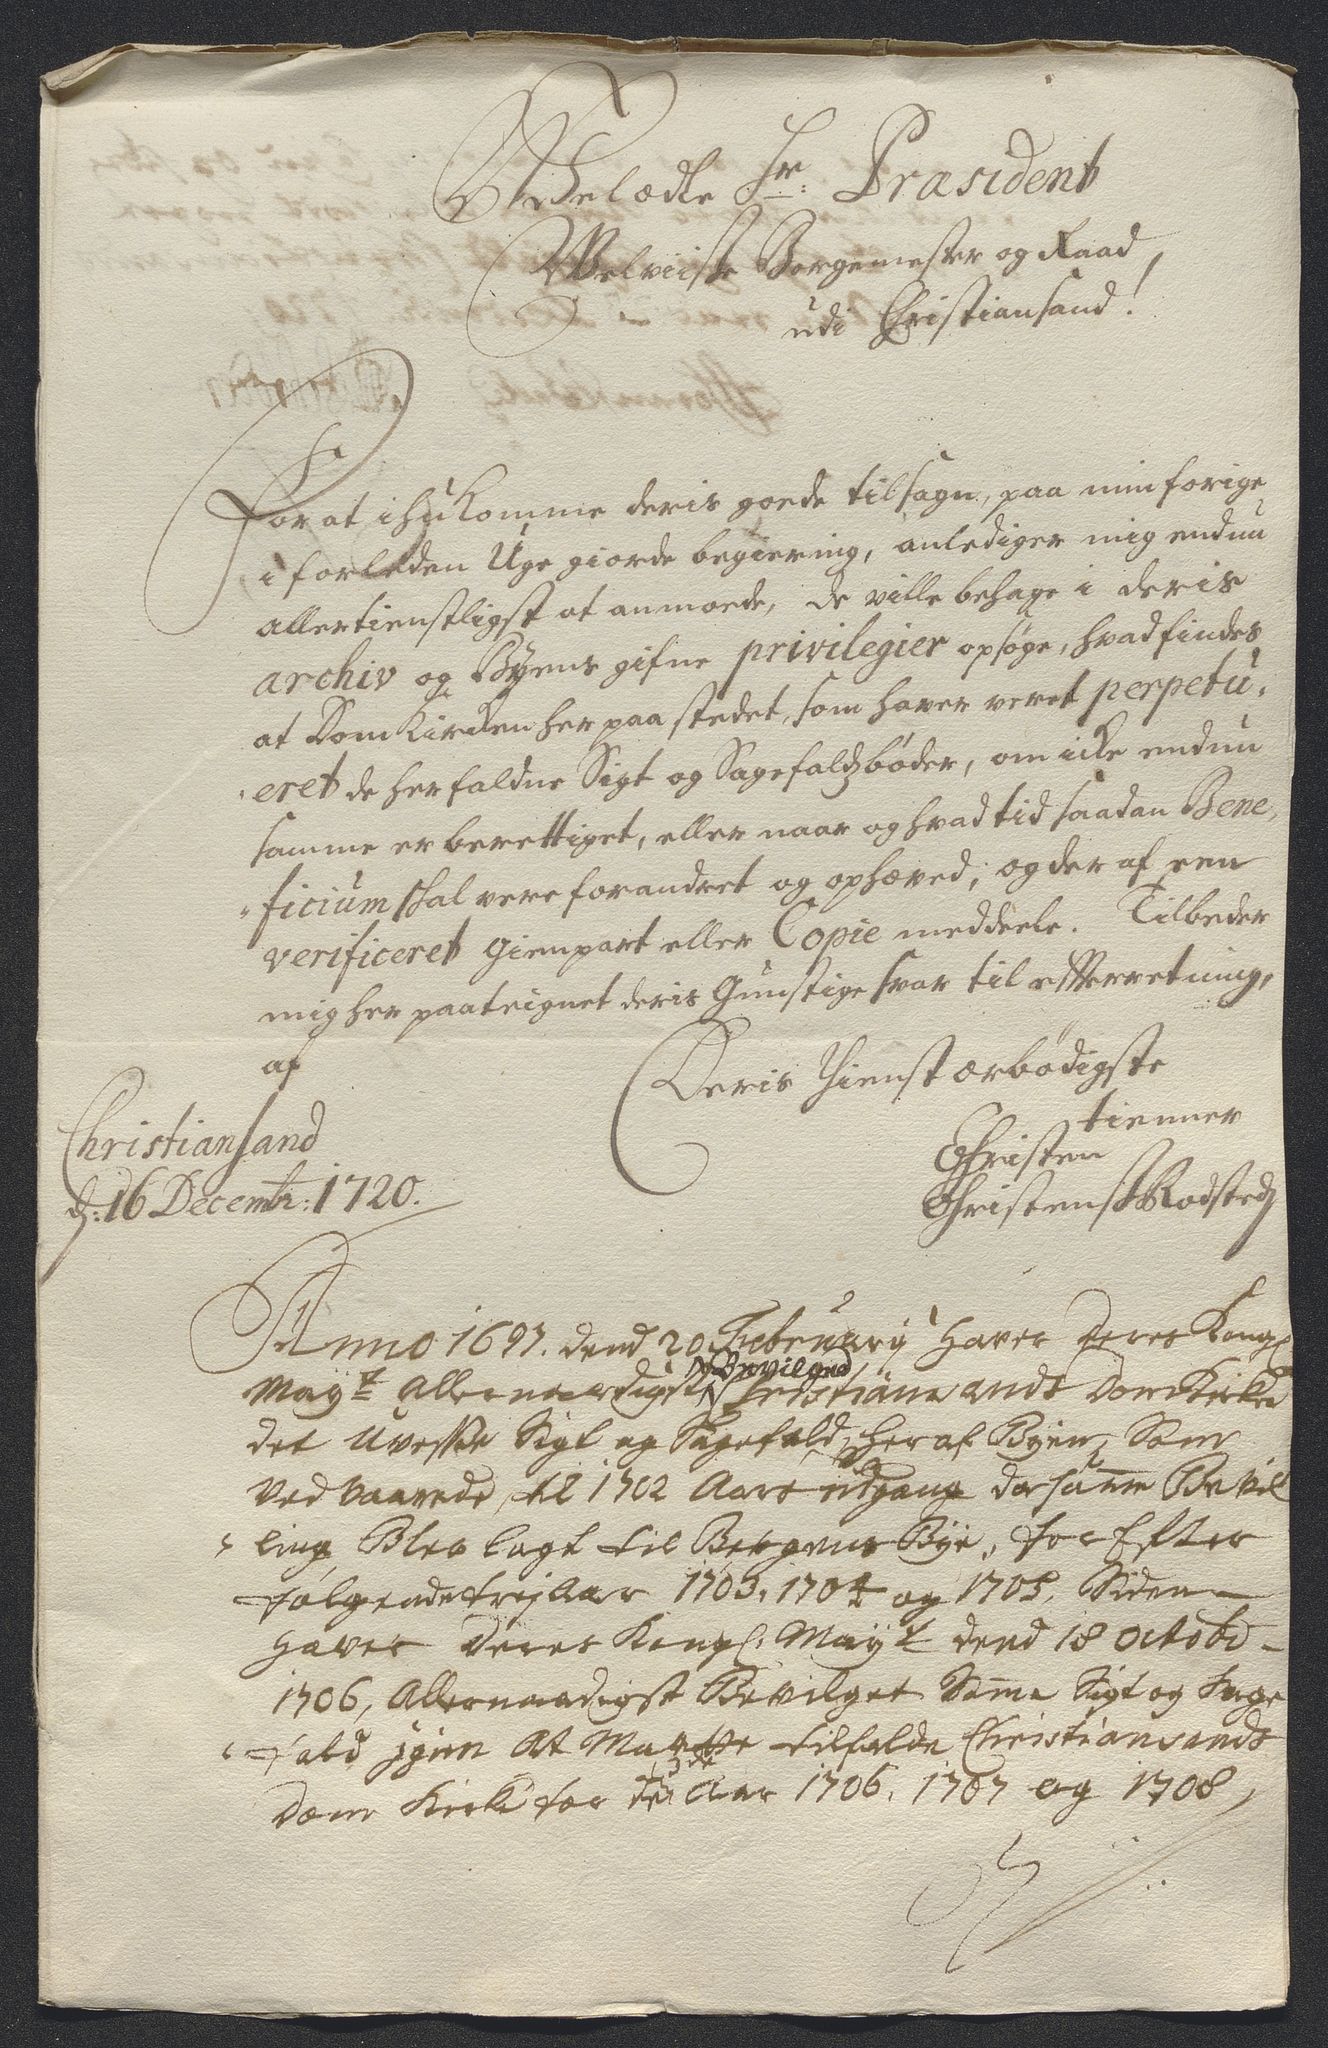 Welædle Hr: Præsident
Welviise Borgemester og Raad,
udi Christiansand!
For at ihukomme deris goede tilsagn, paa min forige
i forleden Uge giorde begiering, anlediger mig endnu
allertienstligst at anmoede, de ville behage i deris
archiv og Byens gifne privilegier opsøge, hvad findes
at Domkirken her paa stedet, som haver veret perpetu,
,eret de her faldne Sigt og Sagefaldzbøder, om icke endnu
samme er berettiget, eller naar og hvad tid saadan Bene,
"ficium skal vere forandret og ophæved; og der af een
verificeret gienpart eller Copie meddeele. Tilbeder
mig her paateignet deris Gunstige svar til efterretning,
af
Deris Thienst ærbødigste
tienner
Christen
Christensß Rodsted
Christiansand
d: 16 Decembr: 1720.
Anno 1697. dend 20 Februarij haver Deres Kongl
Mayt Allernaadigst Bevilged Christiansands Dom Kirke
det Uvesse Sigt og Sagefald, her af Byen, Som
Vedvaarede til 1702 Aars udgang da samme Bevil
ling Blev lagt til Bergens Bye, for Efter
følgende trej Aar 1703, 1704 og 1705. Siden
haver Deres Kongl. Mayt dend 18 Octobr
1706, Allernaadigst Bevilget Samme Sigt og Sage
fald igien At Maatte tilfalde Christiansands
Dom Kirke for de 3de Aar 1706, 1707 og 1708,